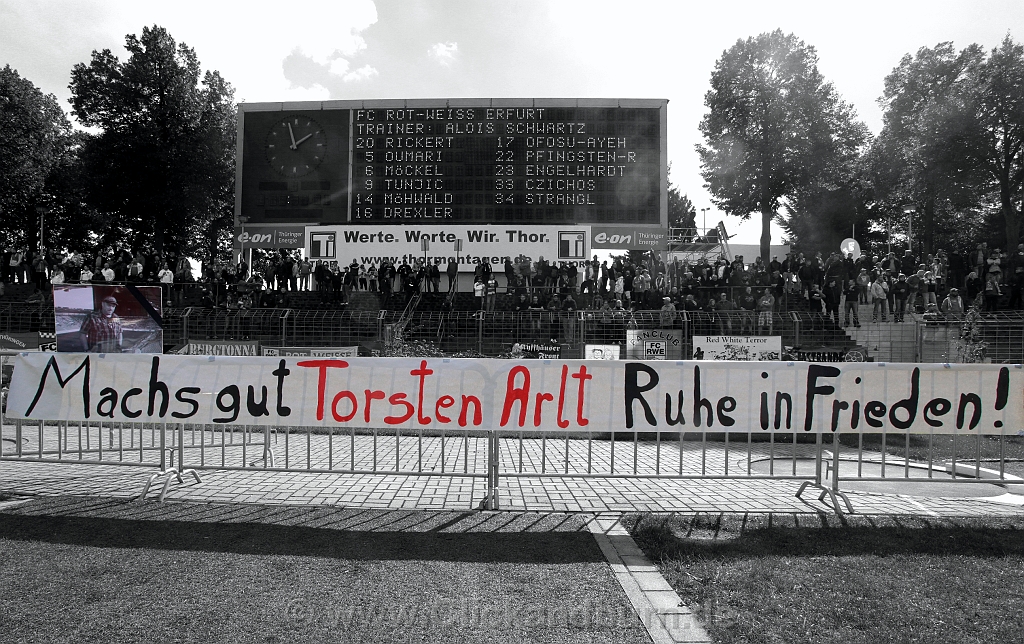 FC ROT-WEISS ERFURT
TRAINER: ALOIS SCHWARTZ
20 RICKERT 17 OFOSU-AYEH
5 OUMARI 22 PFINGSTEN-R
6 MÖCKEL 23 ENGELHARDT
9 TUNJIC 33 CZICHOS
14 MÖHWALD 34 STRANGL
16 DREXLER
e·on Thüringer Energie
Werte. Worte. Wir. Thor.
www.thormontagen.de
Ti
THOR
e·on Thüringer Energie
BERGTONNA
FC RWE
Red White Terror
Machs gut Torsten Arlt Ruhe in Frieden!
© www.Clickandbum.de